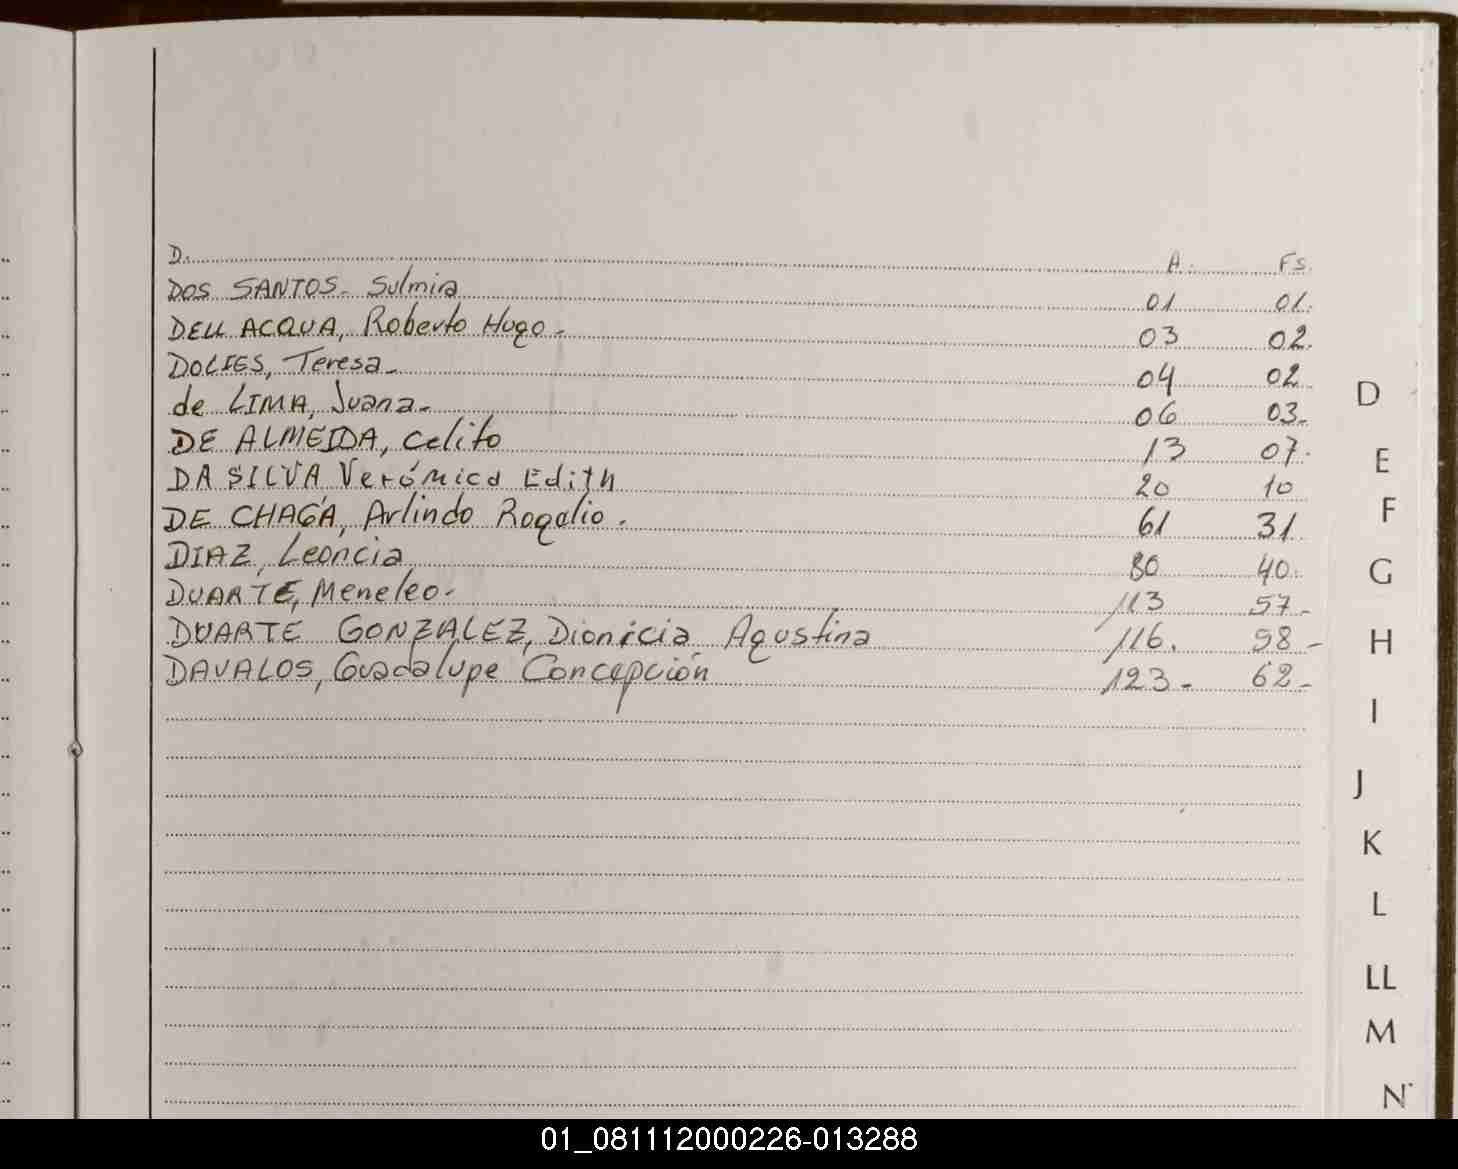 D. A. Fs.
DOS SANTOS- Sulmira 01 01.
DELL ACQUA, Roberto Hugo- 03 02.
DOLIES, Teresa- 04 02
de LIMA, Juana- 06 03-
DE ALMEIDA, Celito 13 07.
DA SILVA Verónica Edith 20 10
DE CHAGA, Arlindo Rogelio. 61 31
DIAZ, Leoncia 80 40.
DUARTE, Meneleo. 113 57-
DUARTE GONZALEZ, Dionicia Agustina 116. 58-
DAVALOS, Guadalupe Concepción 123- 62-
D
E
F
G
H
I
J
K
L
LL
M
N
01_081112000226-013288